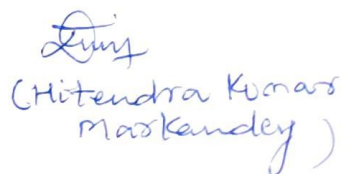 (Hitendra Kumar
Markandey)